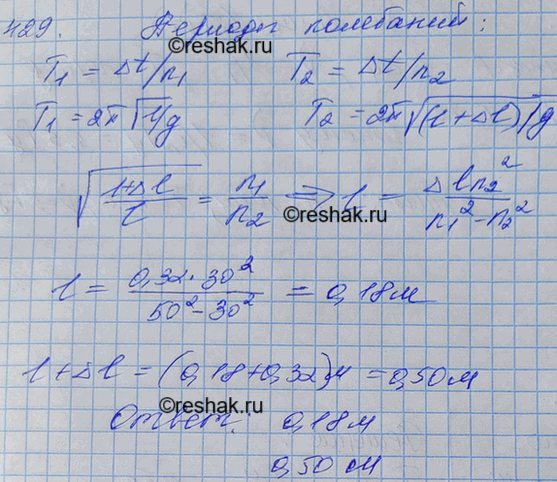 429. Периоды колебаний:
©reshak.ru
T₁ = Δt/n₁ T₂ = Δt/n₂
T₁ = 2π√l/g T₂ = 2π√(l+Δl)/g
√(l+Δl)/l = n₁/n₂ => l = Δln₂²/n₁²-n₂²
©reshak.ru
l = 0,32·30²/50²-30² = 0,18м
©reshak.ru
l+Δl = (0,18+0,32)м = 0,50м
©reshak.ru
Ответ: 0,18м
0,50 см